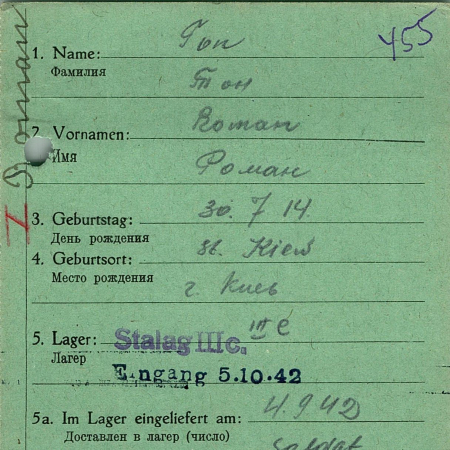 455
1. Name: Гоп
Фамилия Тон
2. Vornamen: Roman
Имя Роман
3. Geburtstag: 30. 7 14.
День рождения
4. Geburtsort: st. Kiew
Место рождения г. Киев
5. Lager: Stalag III c. III C
Лагер Eingang 5.10.42
5a. Im Lager eingeliefert am: 4.9.42
Доставлен в лагер (число)
Soldat